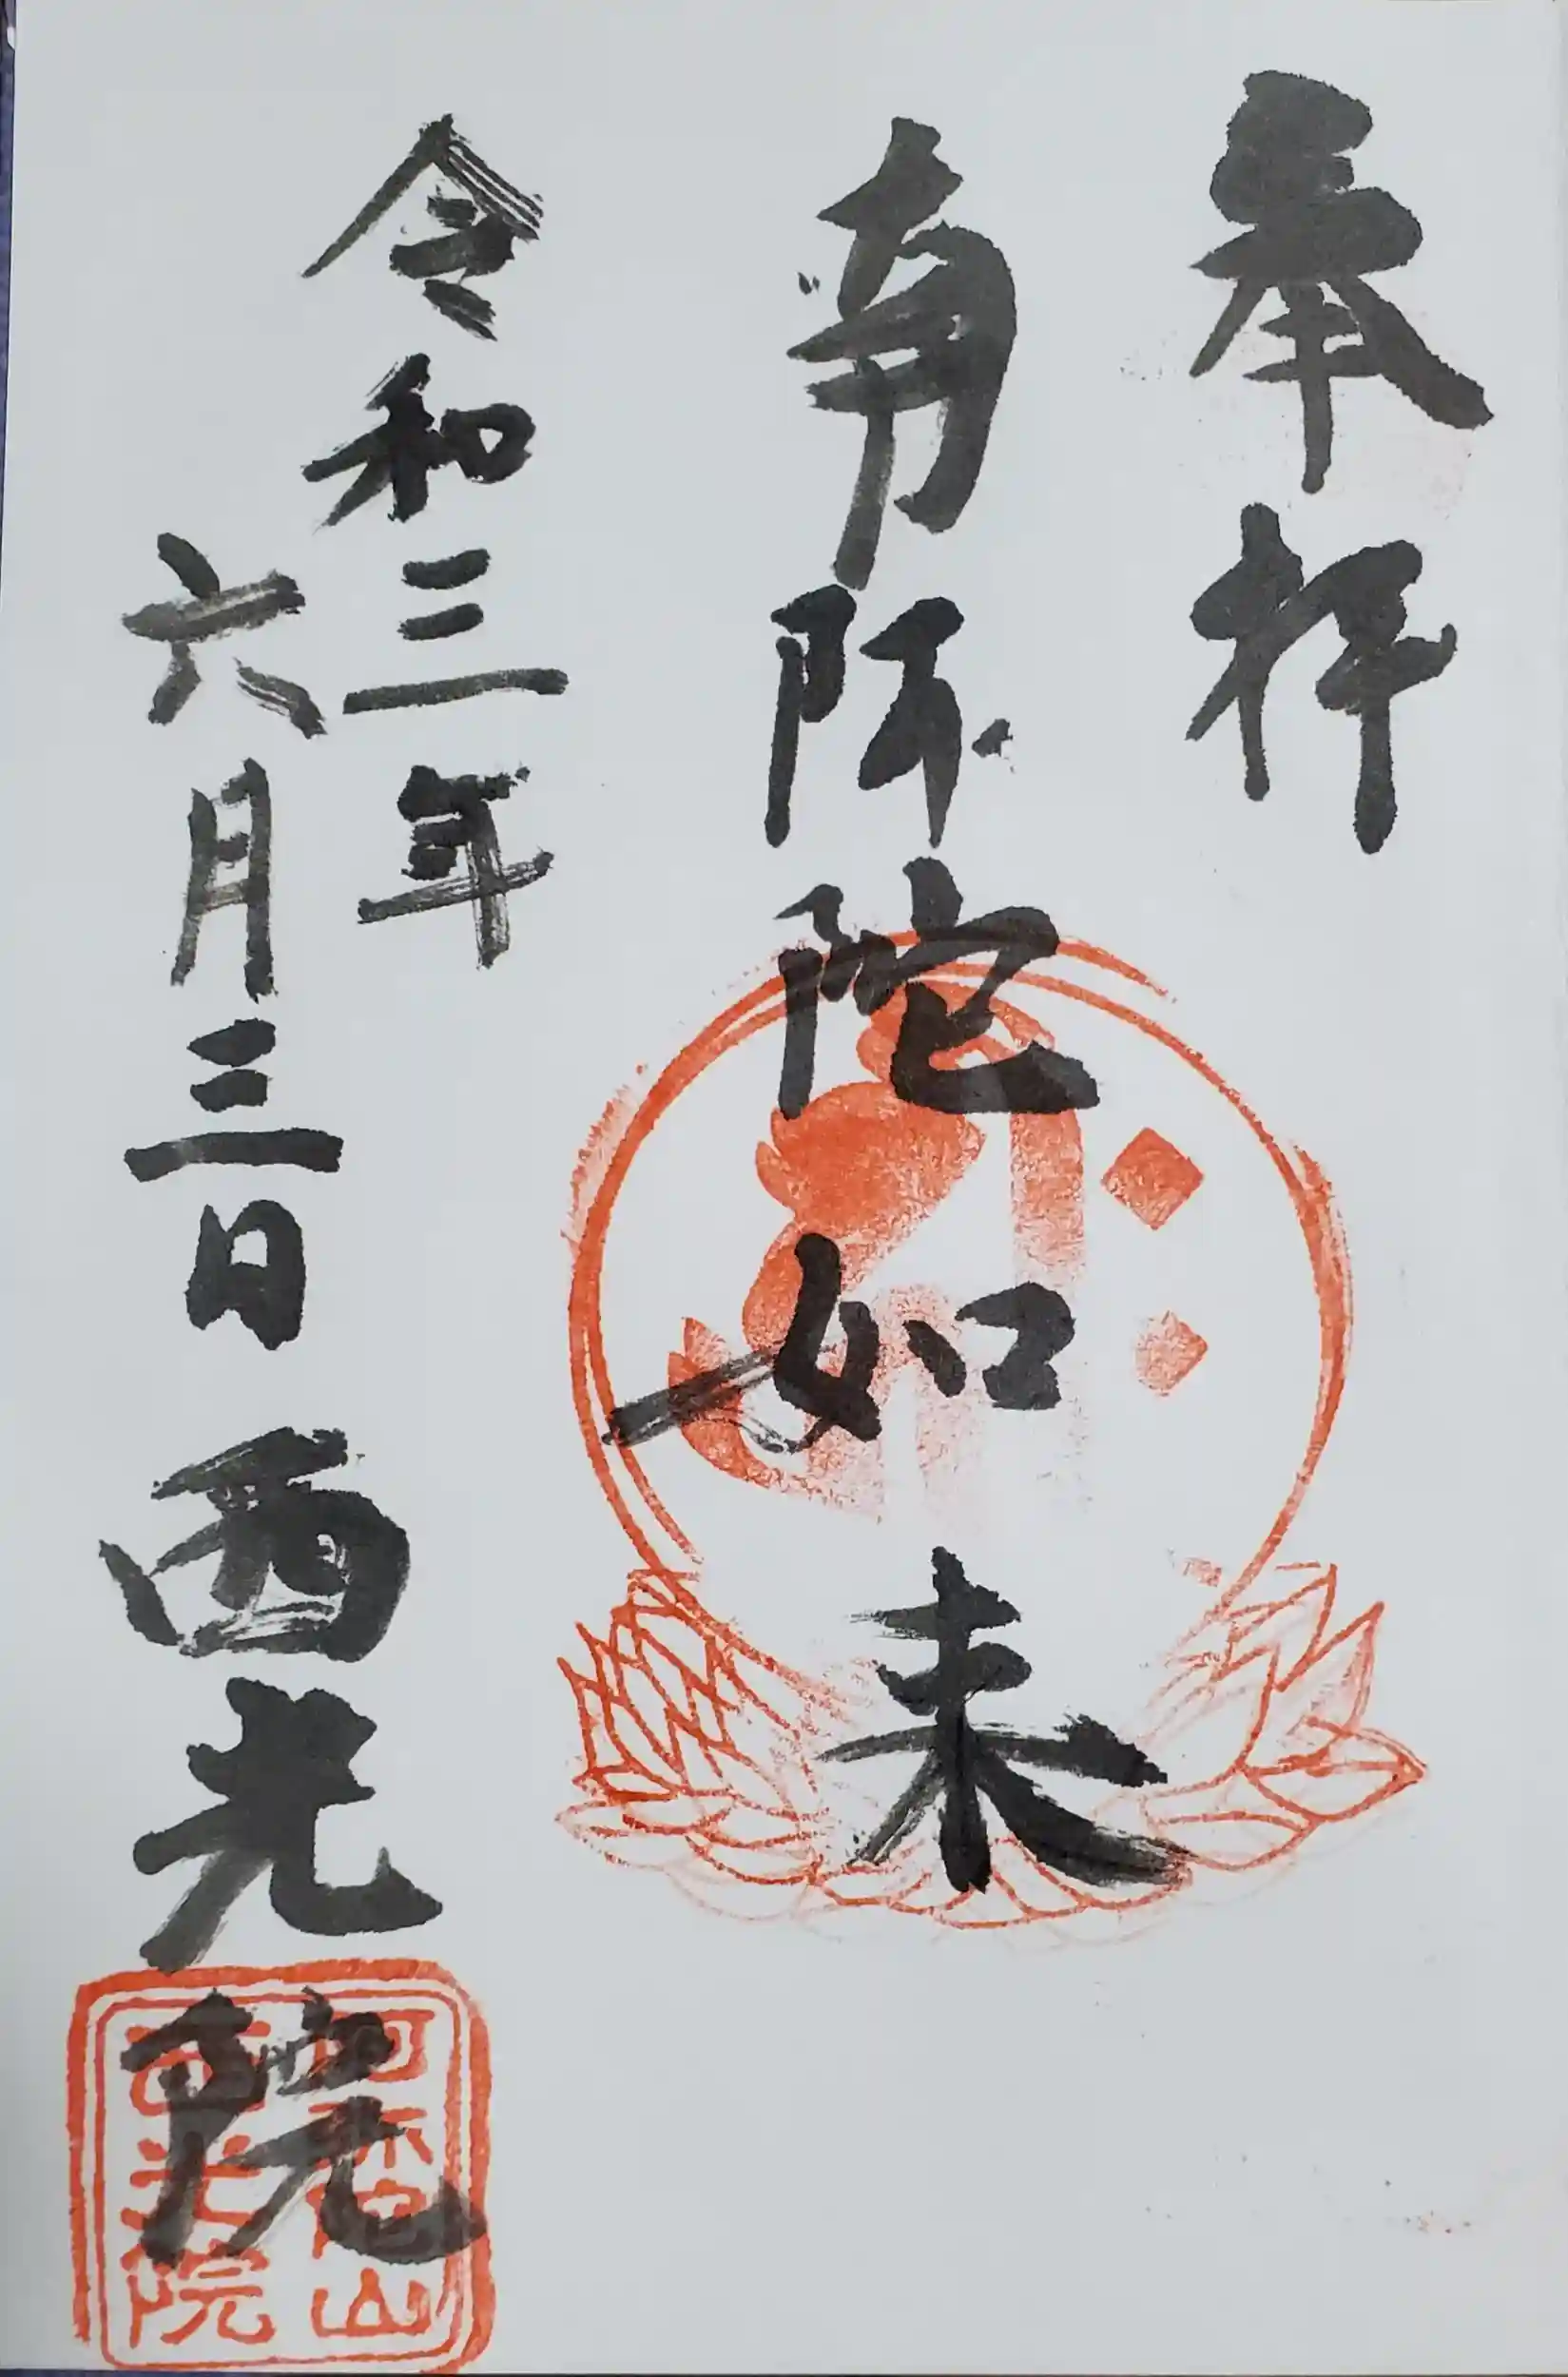 奉拝
阿弥陀如来
令和三年
六月三日 西光院
阿弥陀山
西光院